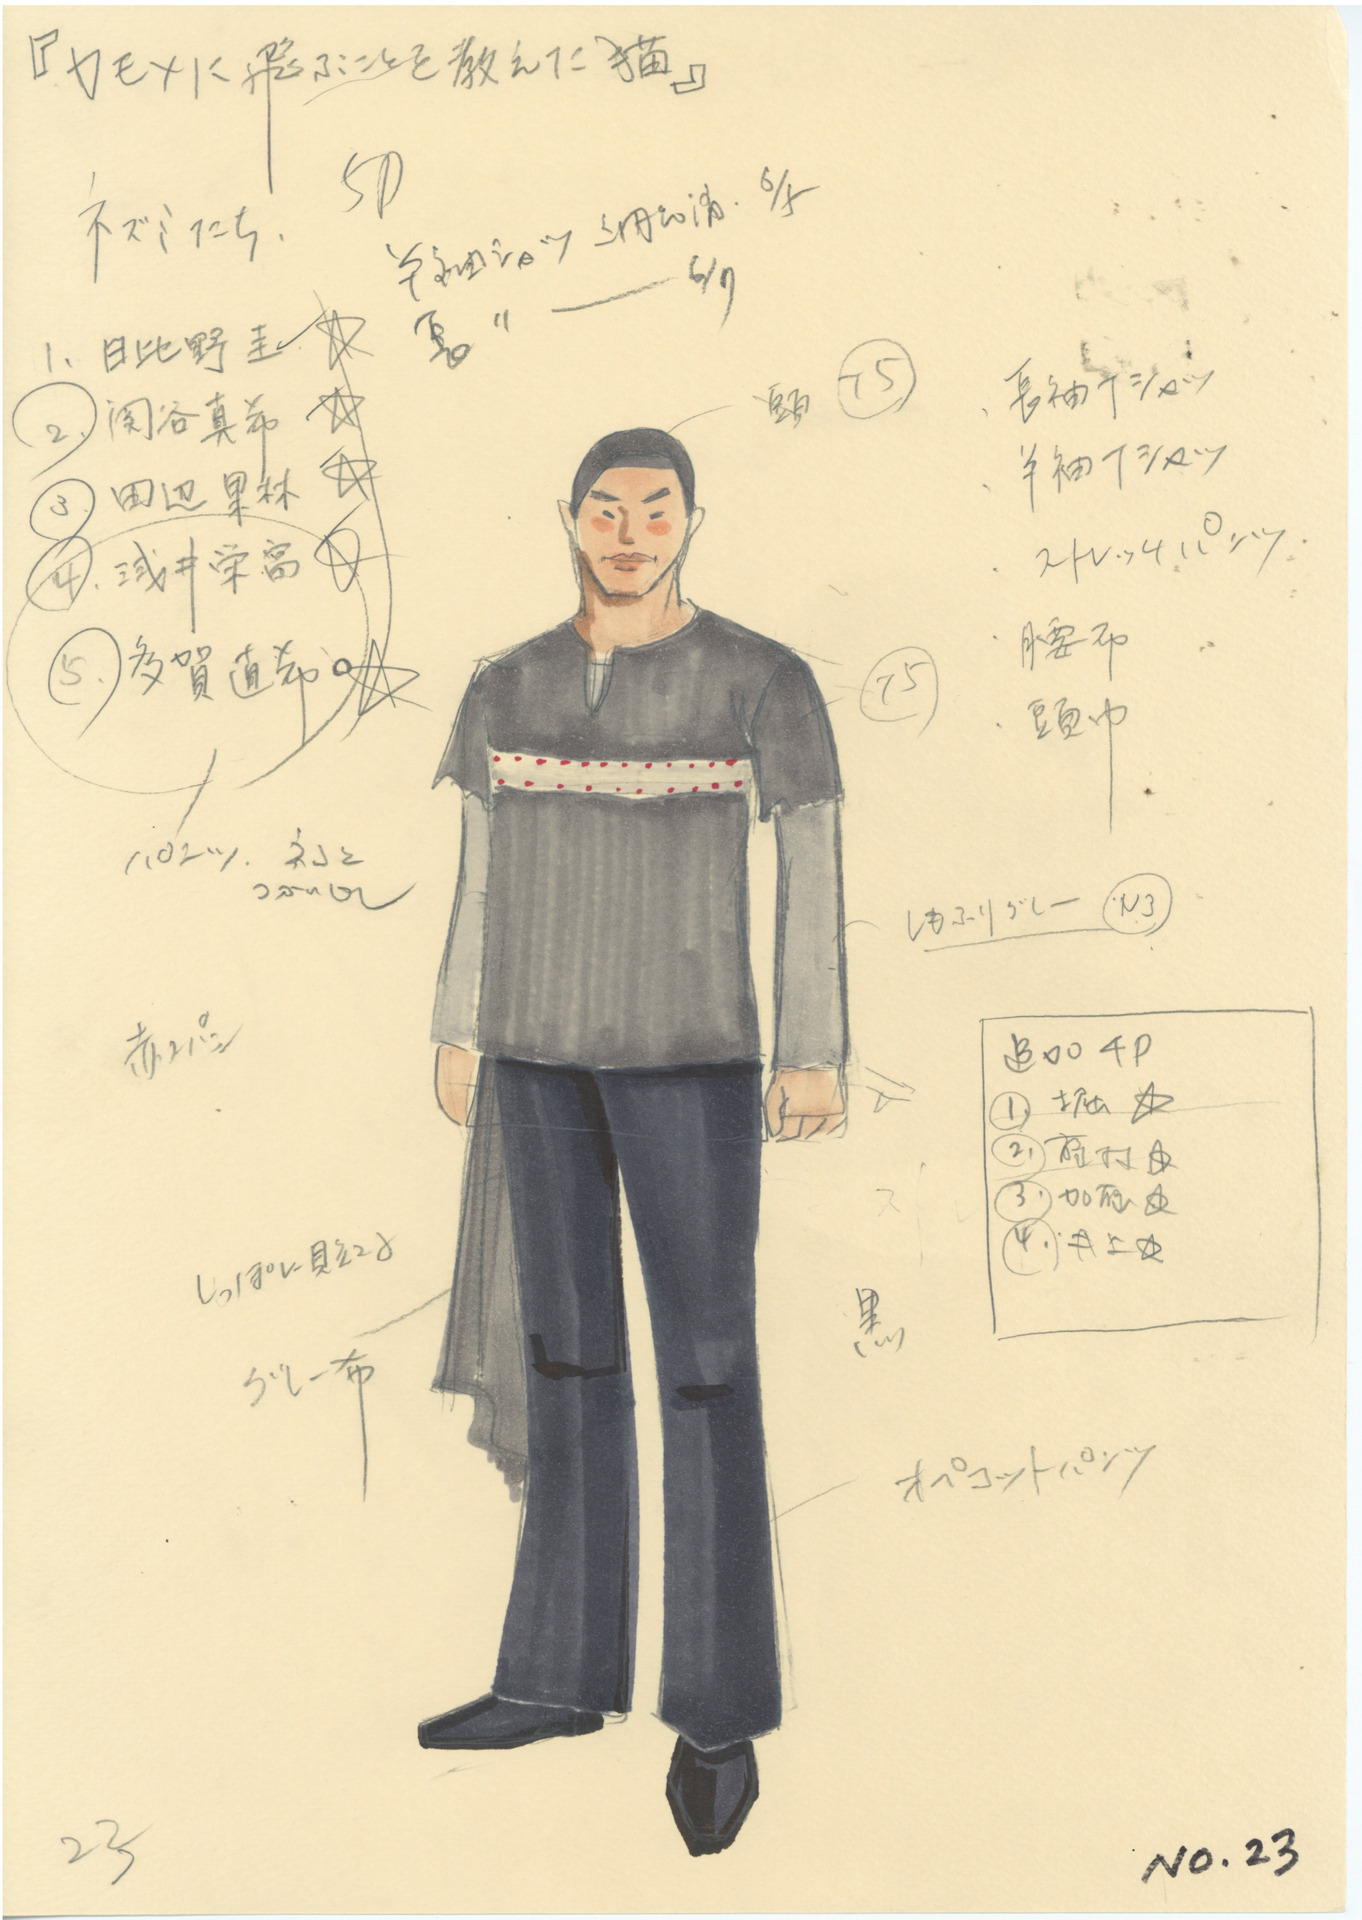 『カモメに飛ぶことを教えた猫』
ネズミたち.
5P
半袖シャツ 6/5
〃 6/7
1. 日比野圭 ☆
2. 関谷真希 ☆
3 田辺果林 ☆
4. 浅井栄高
5. 多賀直希 ☆
パンツ.
頭 T5
・長袖Tシャツ
・半袖Tシャツ
・ストレッチパンツ
・腰布
・頭巾
T5
しもふりグレー N3
追加 4P
1. 堀 ☆
2.
3. 加藤 ☆
4. 井上 ☆
しっぽに見えるよ
グレー布
黒
オペコットパンツ
23
NO.23